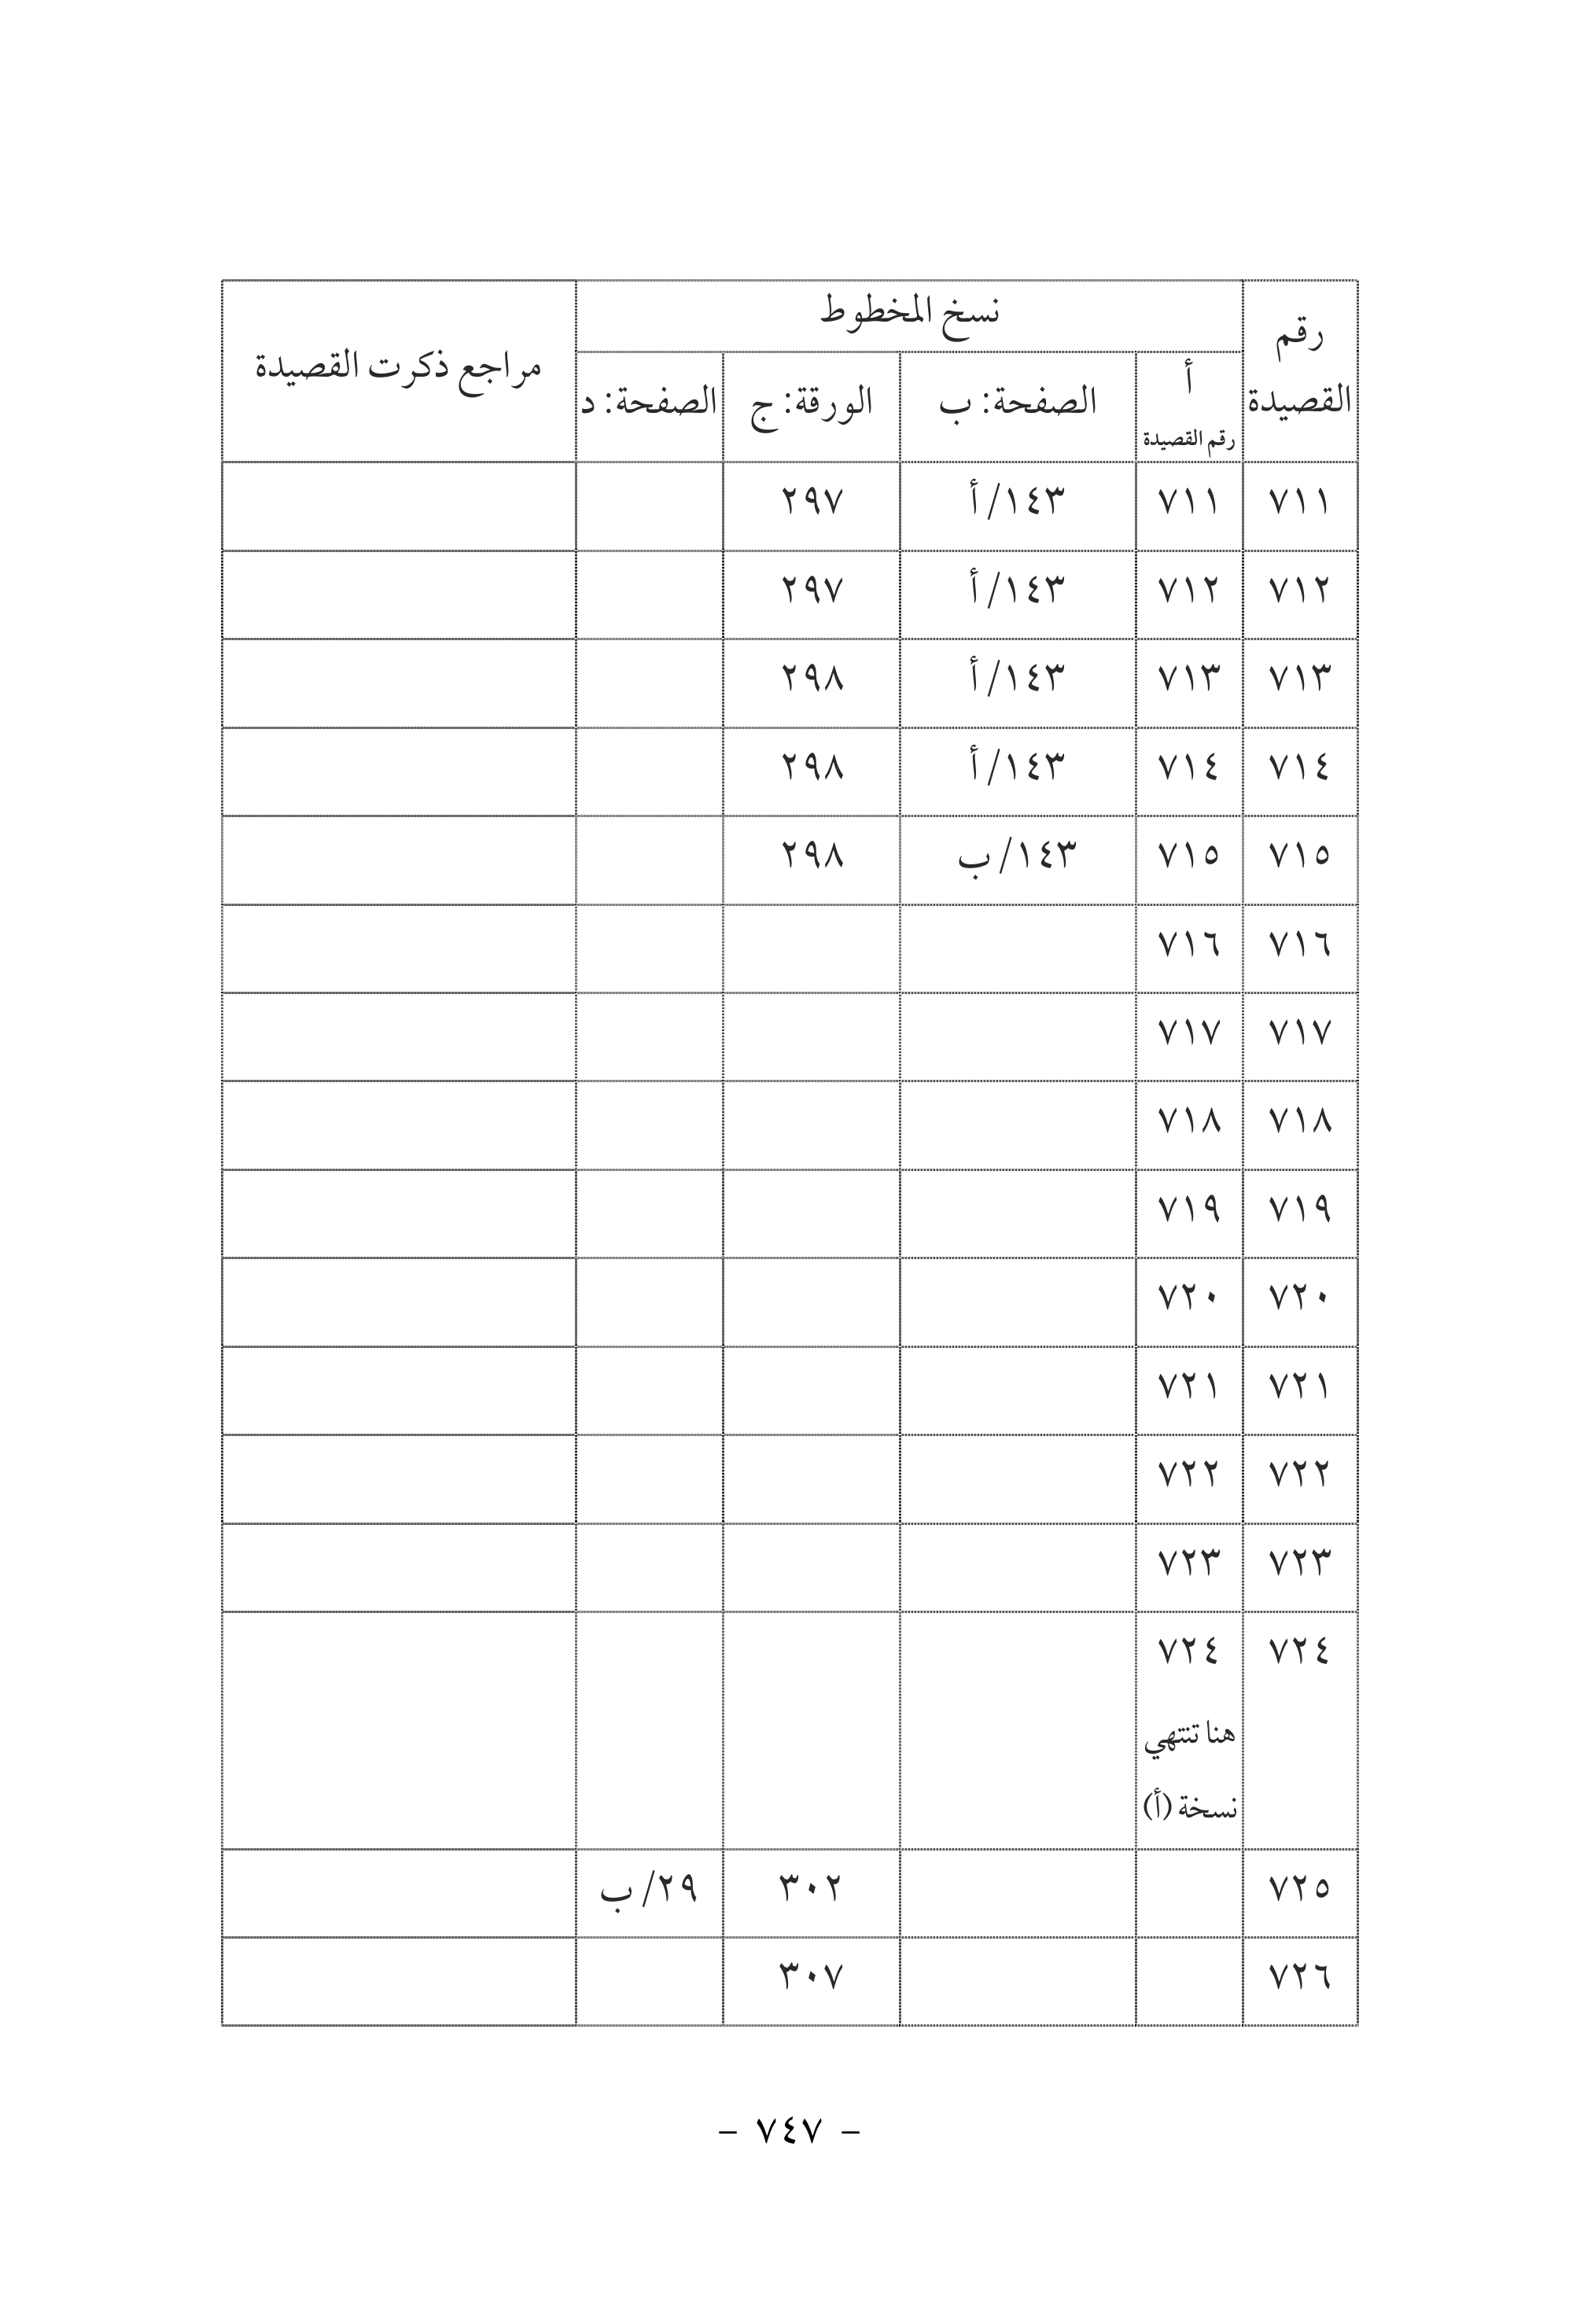 رقم القصيدة نسخ المخطوط مراجع ذكرت القصيدة
أ رقم القصيدة الصفحة: ب الورقة: ج الصفحة: د
٧١١ ٧١١ ١٤٣/ أ ٢٩٧
٧١٢ ٧١٢ ١٤٣/ أ ٢٩٧
٧١٣ ٧١٣ ١٤٣/ أ ٢٩٨
٧١٤ ٧١٤ ١٤٣/ أ ٢٩٨
٧١٥ ٧١٥ ١٤٣/ ب ٢٩٨
٧١٦ ٧١٦
٧١٧ ٧١٧
٧١٨ ٧١٨
٧١٩ ٧١٩
٧٢٠ ٧٢٠
٧٢١ ٧٢١
٧٢٢ ٧٢٢
٧٢٣ ٧٢٣
٧٢٤ ٧٢٤
هنا تنتهي
نسخة (أ)
٧٢٥ ٣٠٢ ٢٩/ ب
٧٢٦ ٣٠٧
- ٧٤٧ -